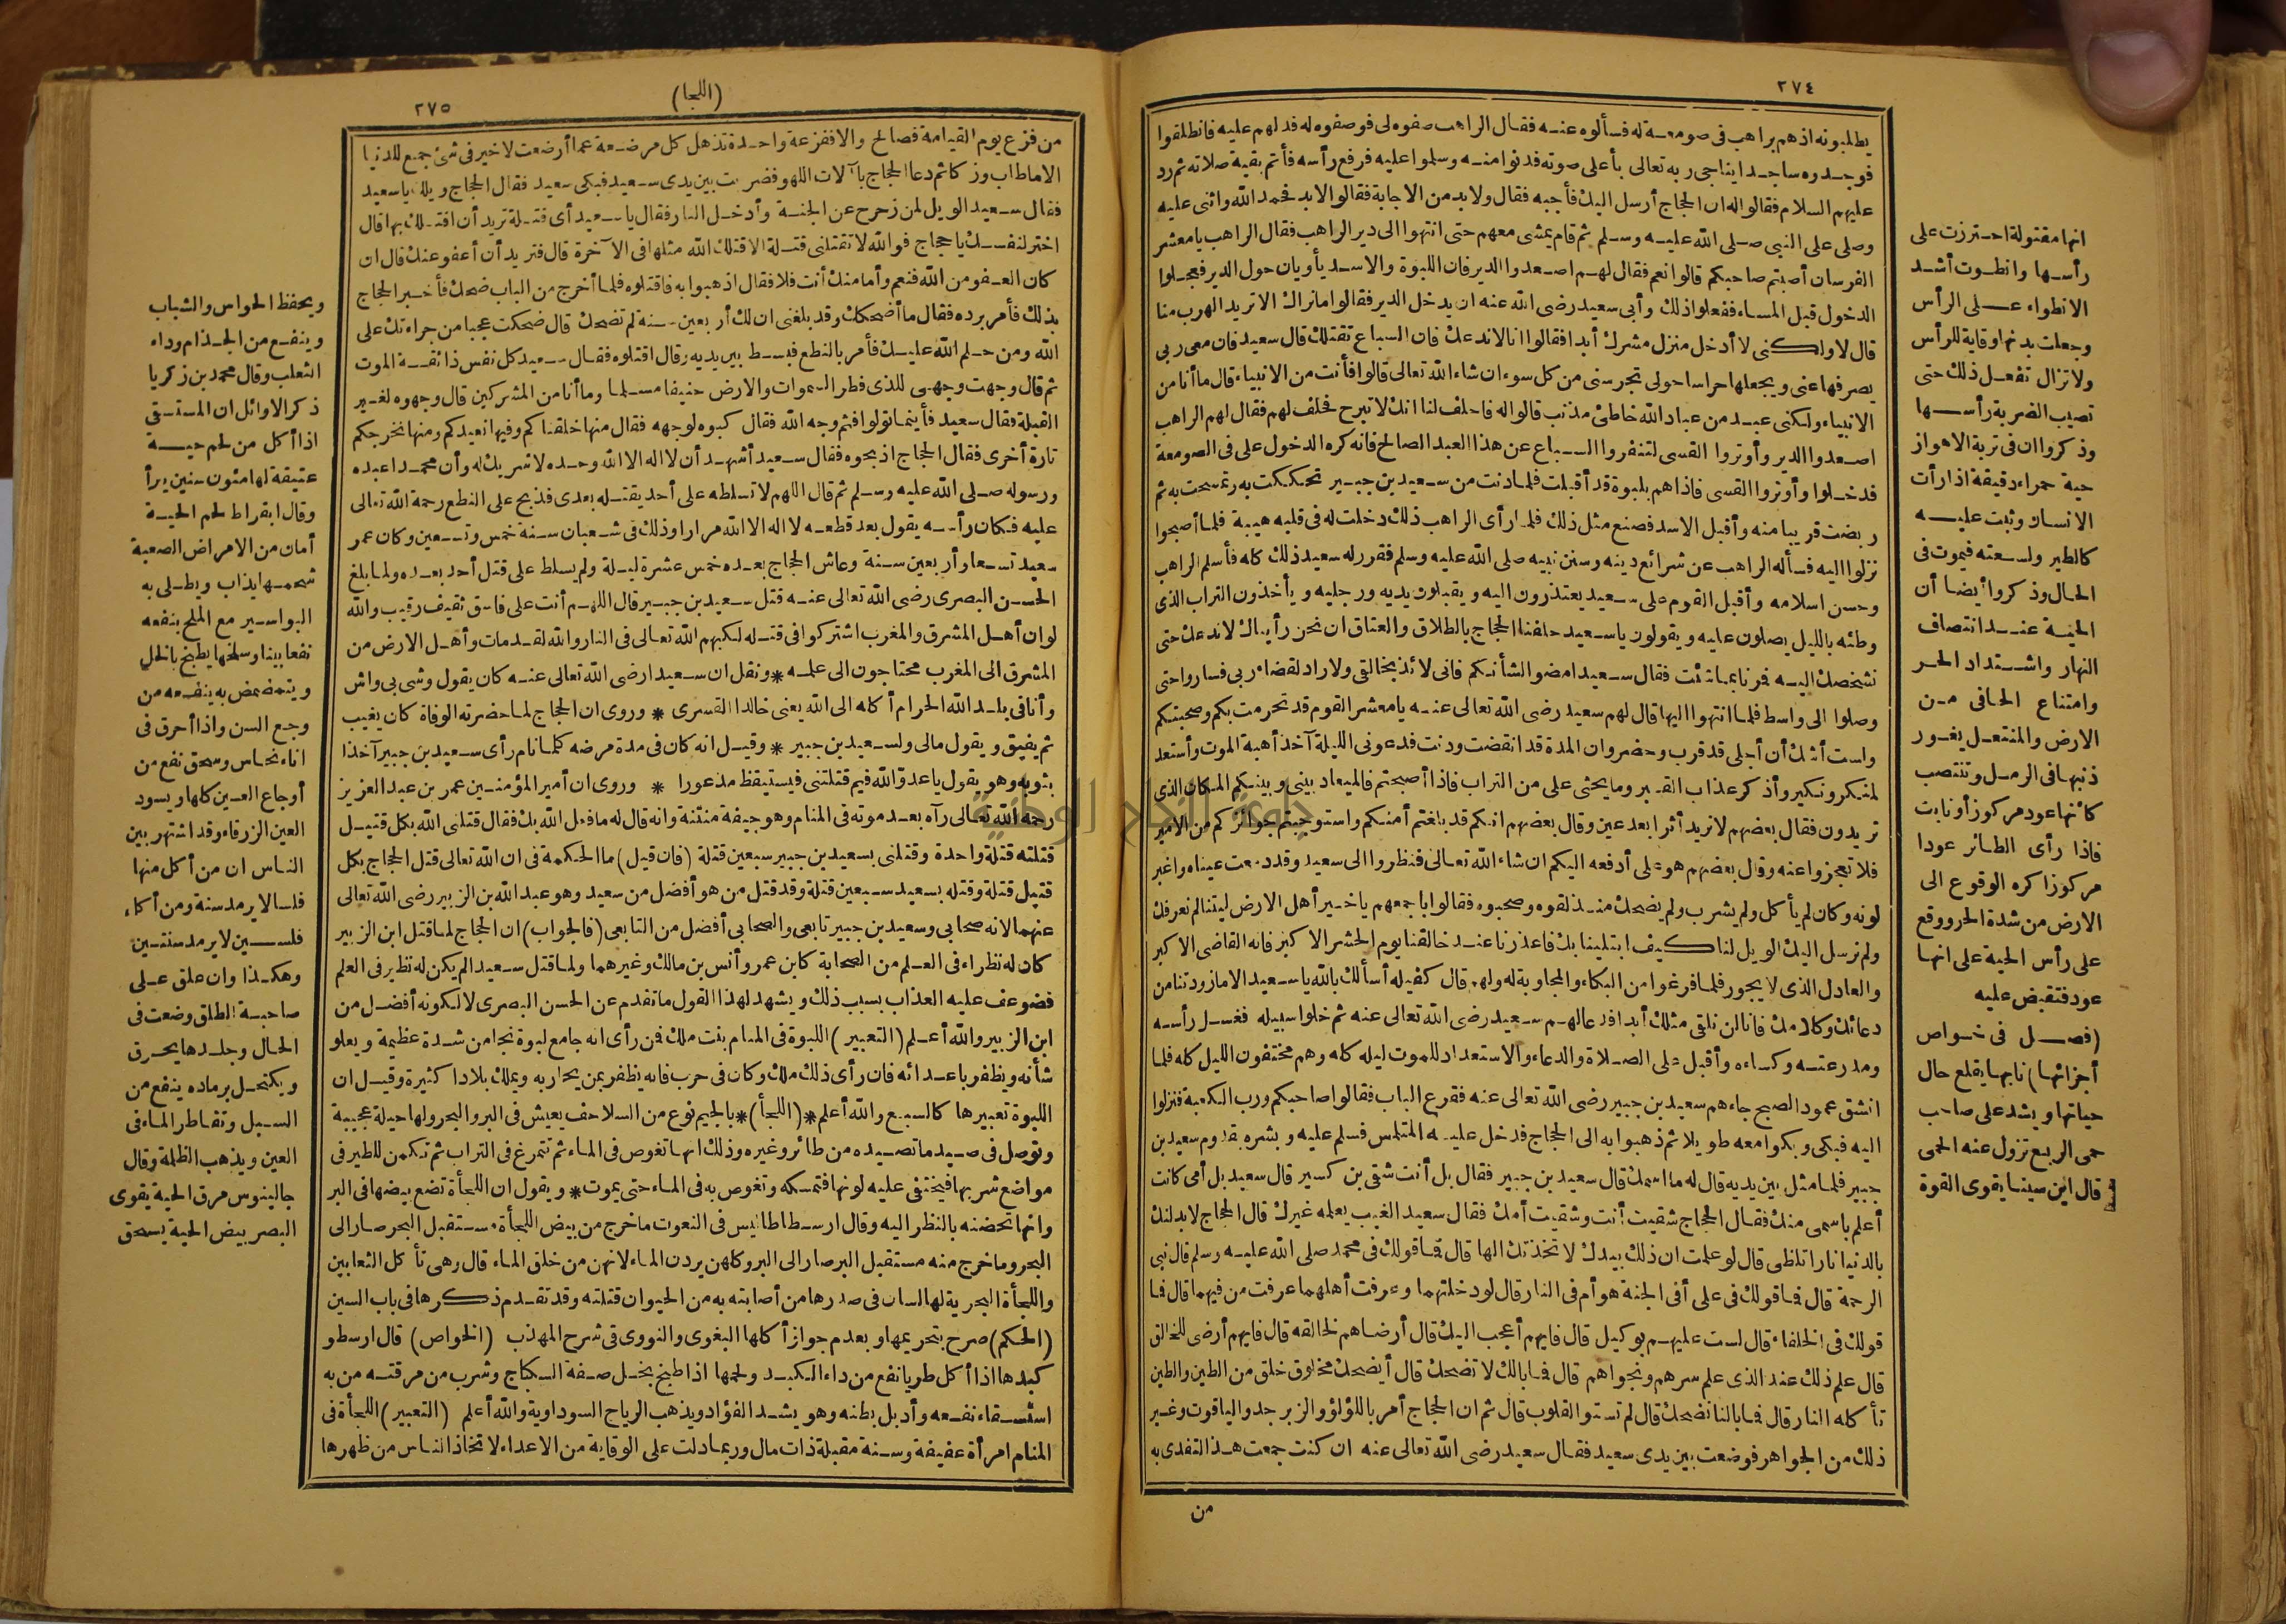 ٢٧٤
يطلبونه اذهم براهب فى صومعة له فسألوه عنه فقال الراهب صفوه لى فوصفوه له فدلهم عليه فانطلقوا
فوجدوه ساجدا يناجى ربه تعالى بأعلى صوته فدنوا منه وسلموا عليه فرفع رأسه فأتم بقية صلاته ثم رد
عليهم السلام فقالوا له ان الحجاج أرسل اليك فأجبه فقال ولابد من الاجابة فقالوا لابد فحمد الله واثنى عليه
وصلى على النبى صلى الله عليه وسلم ثم قام يمشى معهم حتى انتهوا الى دير الراهب فقال الراهب يا معشر
الفرسان أصبتم صاحبكم قالوا نعم فقال لهم اصعدوا الدير فان اللبوة والاسد يأويان حول الدير فعجلوا
الدخول قبل المساء ففعلوا ذلك وأبى سعيد رضى الله عنه ان يدخل الدير فقالوا مانراك الا تريد الهرب منا
قال لا ولكنى لا أدخل منزل مشرك أبدا فقالوا انا لاندعك فان السباع تقتلك قال سعيد فان معى ربى
يصرفها عنى ويجعلها حراسا حولى تحرسنى من كل سوء ان شاء الله تعالى قالوا فأنت من الانبياء قال ما أنا من
الانبياء ولكنى عبد من عباد الله خاطئ مذنب قالوا له فاحلف لنا انك لا تبرح فحلف لهم فقال لهم الراهب
اصعدوا الدير وأوتروا القسى لتنفروا السباع عن هذا العبد الصالح فانه كره الدخول على فى الصومعة
فدخلوا وأوتروا القسى فاذا هم بلبوة قد أقبلت فلما دنت من سعيد بن جبير تحككت به وتمسحت به ثم
ربضت قريبا منه وأقبل الاسد فصنع مثل ذلك فلما رأى الراهب ذلك دخلت له فى قلبه هيبة فلما أصبحوا
نزلوا اليه فسأله الراهب عن شرائع دينه وسنن نبيه صلى الله عليه وسلم فقرر له سعيد ذلك كله فأسلم الراهب
وحسن اسلامه وأقبل القوم على سعيد يعتذرون اليه ويقبلون يديه ورجليه ويأخذون التراب الذى
وطئه بالليل يصلون عليه ويقولون يا سعيد حلفنا الحجاج بالطلاق والعتاق ان نحن رأيناك لاندعك حتى
نشخصك اليه فمرنا بما شئت فقال سعيد امضوا لشأنكم فانى لائذ بخالقى ولا راد لقضاء ربى فساروا حتى
وصلوا الى واسط فلما انتهوا اليها قال لهم سعيد رضى الله تعالى عنه يا معشر القوم قد تحرمت بكم وصحبتكم
ولست أشك أن أجلى قد قرب وحضر وان المدة قد انقضت ودنت فدعونى الليلة آخذ أهبة الموت وأستعد
لمنكر ونكير وأذكر عذاب القبر وما يحثى على من التراب فاذا أصبحتم فالميعاد بينى وبينكم المكان الذى
تريدون فقال بعضهم لانريد أثرا بعد عين وقال بعضهم انكم قد بلغتم أمنكم واستوجبتم جوائزكم من الامير
فلا تعجزوا عنه وقال بعضهم هو على أدفعه اليكم ان شاء الله تعالى فنظروا الى سعيد وقد دمعت عيناه واغبر
لونه وكان لم يأكل ولم يشرب ولم يضحك منذ لقوه وصحبوه فقالوا باجمعهم يا خير أهل الارض ليتنا لم نعرفك
ولم نرسل اليك الويل لنا كيف ابتلينا بك فاعذرنا عند خالقنا يوم الحشر الاكبر فانه القاضى الاكبر
والعادل الذى لا يجور فلما فرغوا من البكاء والمجاوبة له ولهم قال كفيله أسألك بالله يا سعيد الا ما زودتنا من
دعائك وكلامك فانا لن نلقى مثلك أبدا فدعا لهم سعيد رضى الله تعالى عنه ثم خلوا سبيله فغسل رأسه
ومدرعته وكساءه وأقبل على الصلاة والدعاء والاستعداد للموت ليله كله وهم مختفون الليل كله فلما
انشق عمود الصبح جاءهم سعيد بن جبير رضى الله تعالى عنه فقرع الباب فقالوا صاحبكم ورب الكعبة فنزلوا
اليه فبكى وبكوا معه طويلا ثم ذهبوا به الى الحجاج فدخل عليه المتلمس فسلم عليه وبشره بقدوم سعيد بن
جبير فلما مثل بين يديه قال له ما اسمك قال سعيد بن جبير فقال بل أنت شقى بن كسير قال سعيد بل أمى كانت
أعلم باسمى منك فقال الحجاج شقيت أنت وشقيت أمك فقال سعيد الغيب يعلمه غيرك قال الحجاج لابدلنك
بالدنيا نارا تلظى قال لو علمت ان ذلك بيدك لاتخذتك الها قال فما قولك فى محمد صلى الله عليه وسلم قال نبى
الرحمة قال فما قولك فى على أفى الجنة هو أم فى النار قال لو دخلتهما وعرفت أهلهما عرفت من فيهما قال فما
قولك فى الخلفاء قال لست عليهم بوكيل قال فايهم أعجب اليك قال أرضاهم لخالقه قال فايهم أرضى للخالق
قال علم ذلك عند الذى علم سرهم ونجواهم قال فما بالك لا تضحك قال أيضحك مخلوق خلق من الطين والطين
تأكله النار قال فما بالنا نضحك قال لم تستو القلوب قال ثم ان الحجاج أمر باللؤلؤ والزبرجد والياقوت وغير
ذلك من الجواهر فوضعت بين يدى سعيد فقال سعيد رضى الله تعالى عنه ان كنت جمعت هذا لتفدى به
من
انها مقتولة احترزت على
رأسها وانطوت أشد
الانطواء على الرأس
وجعلت بدنها وقاية للرأس
ولا تزال تفعل ذلك حتى
تصيب الضربة رأسها
وذكروا ان فى تربة الاهواز
حية حمراء دقيقة اذا رأت
الانسان وثبت عليه
كالطير ولسعته فيموت فى
الحال وذكروا أيضا أن
الحية عند انتصاف
النهار واشتداد الحر
وامتناع الحافى من
الارض والمنتعل يغور
ذنبها فى الرمل وتنتصب
كأنها عود مركوز أو نابت
فاذا رأى الطائر عودا
مركوزا كره الوقوع الى
الارض من شدة الحر ووقع
على رأس الحية على انها
عود فتقبض عليه
(فصل فى خواص
أجزائها) نابها يقلع حال
حياتها ويشد على صاحب
حمى الربع تزول عنه الحمى
قال ابن سينا يقوى القوة
٢٧٥
(اللجا)
من فزع يوم القيامة فصالح والا ففزعة واحدة تذهل كل مرضعة عما أرضعت لا خير فى شئ جمع للدنيا
الا ما طاب وزكا ثم دعا الحجاج بآلات اللهو فضربت بين يدى سعيد فبكى سعيد فقال الحجاج ويلك يا سعيد
فقال سعيد الويل لمن زحزح عن الجنة وأدخل النار فقال يا سعيد أى قتلة تريد أن اقتلك بها قال
اختر لنفسك يا حجاج فو الله لا تقتلنى قتلة الا قتلك الله مثلها فى الآخرة قال فتريد أن أعفو عنك قال ان
كان العفو من الله فنعم وأما منك أنت فلا فقال اذهبوا به فاقتلوه فلما أخرج من الباب ضحك فأخبر الحجاج
بذلك فأمر برده فقال ما أضحكك وقد بلغنى ان لك أربعين سنة لم تضحك قال ضحكت عجبا من جراءتك على
الله ومن حلم الله عليك فأمر بالنطع فبسط بين يديه وقال اقتلوه فقال سعيد كل نفس ذائقة الموت
ثم قال وجهت وجهى للذى فطر السموات والارض حنيفا مسلما وما أنا من المشركين قال وجهوه لغير
القبلة فقال سعيد فأينما تولوا فثم وجه الله فقال كبوه لوجهه فقال منها خلقناكم وفيها نعيدكم ومنها نخرجكم
تارة أخرى فقال الحجاج اذبحوه فقال سعيد أشهد أن لا اله الا الله وحده لا شريك له وأن محمدا عبده
ورسوله صلى الله عليه وسلم ثم قال اللهم لا تسلطه على أحد يقتله بعدى فذبح على النطع رحمة الله تعالى
عليه فكان رأسه يقول بعد قطعه لا اله الا الله مرارا وذلك فى شعبان سنة خمس وتسعين وكان عمر
سعيد تسعا وأربعين سنة وعاش الحجاج بعده خمس عشرة ليلة ولم يسلط على قتل أحد بعده ولما بلغ
الحسن البصرى رضى الله تعالى عنه قتل سعيد بن جبير قال اللهم أنت على فاسق ثقيف رقيب والله
لو ان أهل المشرق والمغرب اشتركوا فى قتله لكبهم الله تعالى فى النار والله لقد مات وأهل الارض من
المشرق الى المغرب محتاجون الى علمه * ونقل ان سعيدا رضى الله تعالى عنه كان يقول وشى بى واش
وأنا فى بلد الله الحرام أكله الى الله يعنى خالدا القسرى * وروى ان الحجاج لما حضرته الوفاة كان يغيب
ثم يفيق ويقول مالى ولسعيد بن جبير * وقيل انه كان فى مدة مرضه كلما نام رأى سعيد بن جبير آخذا
بثوبه وهو يقول يا عدو الله فيم قتلتنى فيستيقظ مذعورا * وروى ان أمير المؤمنين عمر بن عبد العزيز
رحمه الله تعالى رآه بعد موته فى المنام وهو جيفة منتنة وانه قال له ما فعل الله بك فقال قتلنى الله بكل قتيل
قتلته قتلة واحدة وقتلنى بسعيد بن جبير سبعين قتلة (فان قيل) ما الحكمة فى ان الله تعالى قتل الحجاج بكل
قتيل قتلة وقتله بسعيد سبعين قتلة وقد قتل من هو أفضل من سعيد وهو عبد الله بن الزبير رضى الله تعالى
عنهما لانه صحابى وسعيد بن جبير تابعى والصحابى أفضل من التابعى (فالجواب) ان الحجاج لما قتل ابن الزبير
كان له نظراء فى العلم من الصحابة كابن عمر وأنس بن مالك وغيرهما ولما قتل سعيدا لم يكن له نظير فى العلم
فضوعف عليه العذاب بسبب ذلك ويشهد لهذا القول ما تقدم عن الحسن البصرى لا لكونه أفضل من
ابن الزبير والله أعلم (التعبير) اللبوة فى المنام بنت ملك فمن رأى انه جامع لبوة نجا من شدة عظيمة ويعلو
شأنه ويظفر باعدائه فان رأى ذلك ملك وكان فى حرب فانه يظفر بمن يحاربه ويملك بلادا كثيرة وقيل ان
اللبوة تعبيرها كالسبع والله أعلم * (اللجأ) * بالجيم نوع من السلاحف يعيش فى البر والبحر ولها حيلة عجيبة
وتوصل فى صيد ما تصيده من طائر وغيره وذلك انها تغوص فى الماء ثم تتمرغ فى التراب ثم تكمن للطير فى
مواضع شربها فيختفى عليه لونها فتمسكه وتغوص به فى الماء حتى يموت * ويقول ان اللجأة تضع بيضها فى البر
وانها تحضنه بالنظر اليه وقال ارسطاطاليس فى النعوت ما خرج من بيض اللجأة مستقبل البحر صار الى
البحر وما خرج منه مستقبل البر صار الى البر وكلهن يردن الماء لانهن من خلق الماء قال وهى تأكل الثعابين
واللجأة البحرية لها لسان فى صدرها من أصابته به من الحيوان قتلته وقد تقدم ذكرها فى باب السين
(الحكم) صرح بتحريمها وبعدم جواز أكلها البغوى والنووى فى شرح المهذب (الخواص) قال ارسطو
كبدها اذا أكل طريا نفع من داء الكبد ولحمها اذا طبخ بخل صفة السكباج وشرب من مرقته من به
استسقاء نفعه وأدبل بطنه وهو يشد الفؤاد ويذهب الرياح السوداوية والله أعلم (التعبير) اللجأة فى
المنام امرأة عفيفة وسنة مقبلة ذات مال وربما دلت على الوقاية من الاعداء لاتخاذ الناس من ظهرها
ويحفظ الحواس والشباب
وينفع من الجذام وداء
الثعلب وقال محمد بن زكريا
ذكر الاوائل ان المستسقى
اذا أكل من لحم حية
عتيقة لها مئون سنين يبرأ
وقال ابقراط لحم الحية
أمان من الامراض الصعبة
شحمها يذاب ويطلى به
البواسير مع الملح ينفعه
نفعا بينا وسلخها يطبخ بالخل
ويتمضمض به ينفعه من
وجع السن واذا أحرق فى
اناء نحاس وسحق نفع من
أوجاع العين كلها ويسود
العين الزرقاء وقد اشتهر بين
الناس ان من أكل منها
فلسا لا يرمد سنة ومن أكل
فلسين لا يرمد سنتين
وهكذا وان علق على
صاحبة الطلق وضعت فى
الحال وجلدها يحرق
ويكتحل برماده ينفع من
السبل وتقاطر الماء فى
العين ويذهب الظلمة وقال
جالينوس مرق الحية يقوى
البصر بيض الحية يسحق
جامعة النجاح الوطنية